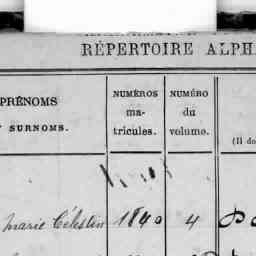 RÉPERTOIRE ALPH
PRÉNOMS
SURNOMS.
NUMÉROS
ma-
tricules.
NUMÉRO
du
volume.
(Il do
marie Célestin 1840 4